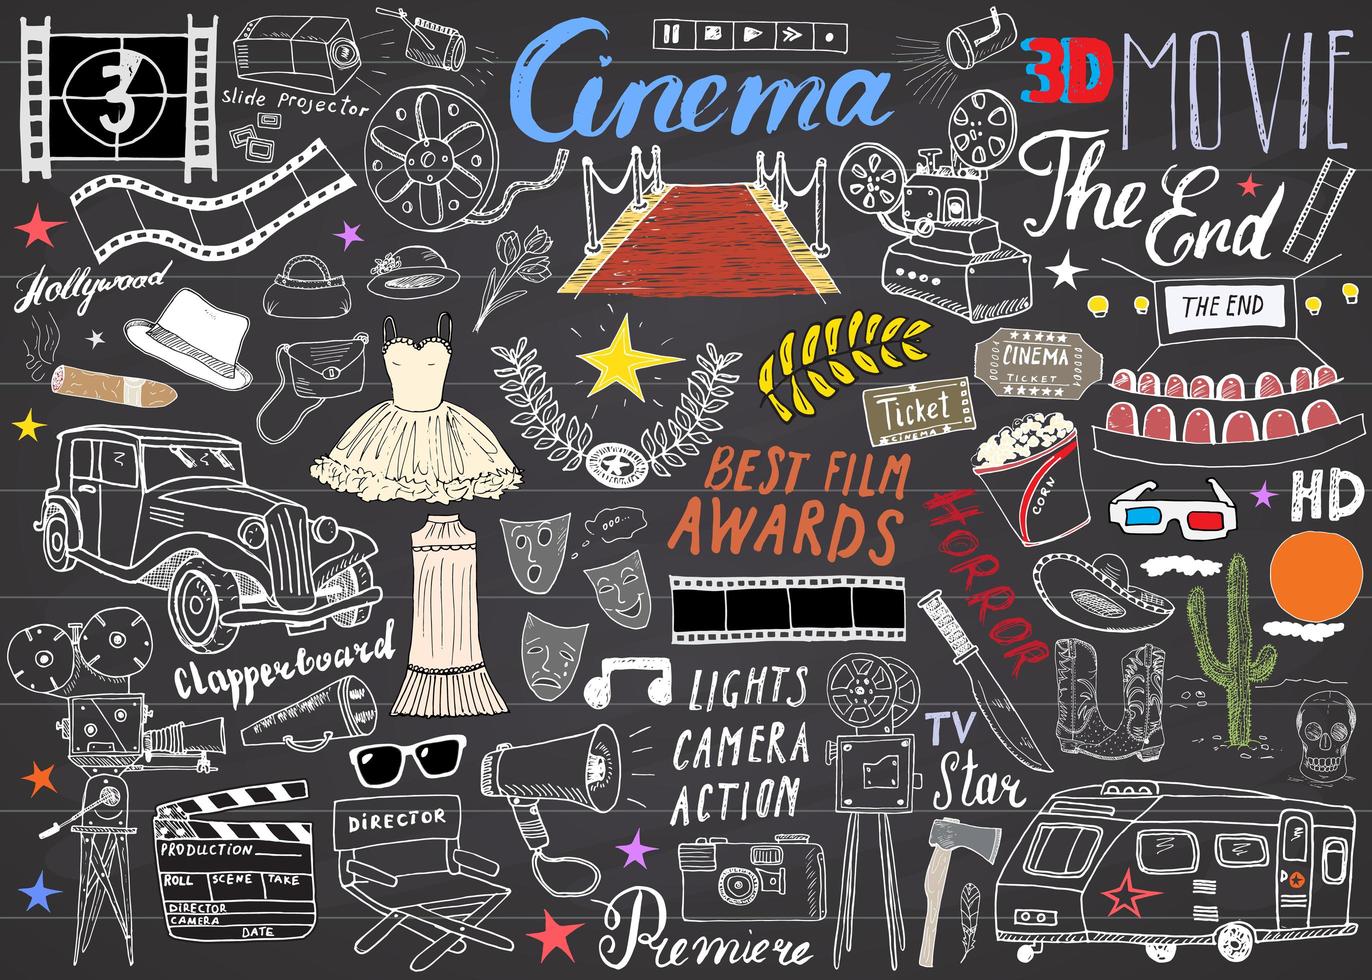 3
slide Projector
Cinema
3D MOVIE
The End
Hollywood
THE END
CINEMA
TICKET
Ticket
CINEMA
CORN
BEST FILM
AWARDS
HORROR
HD
Clapperboard
LIGHTS
CAMERA
ACTION
TV
Star
DIRECTOR
PRODUCTION
ROLL SCENE TAKE
DIRECTOR
CAMERA
DATE
Premiere